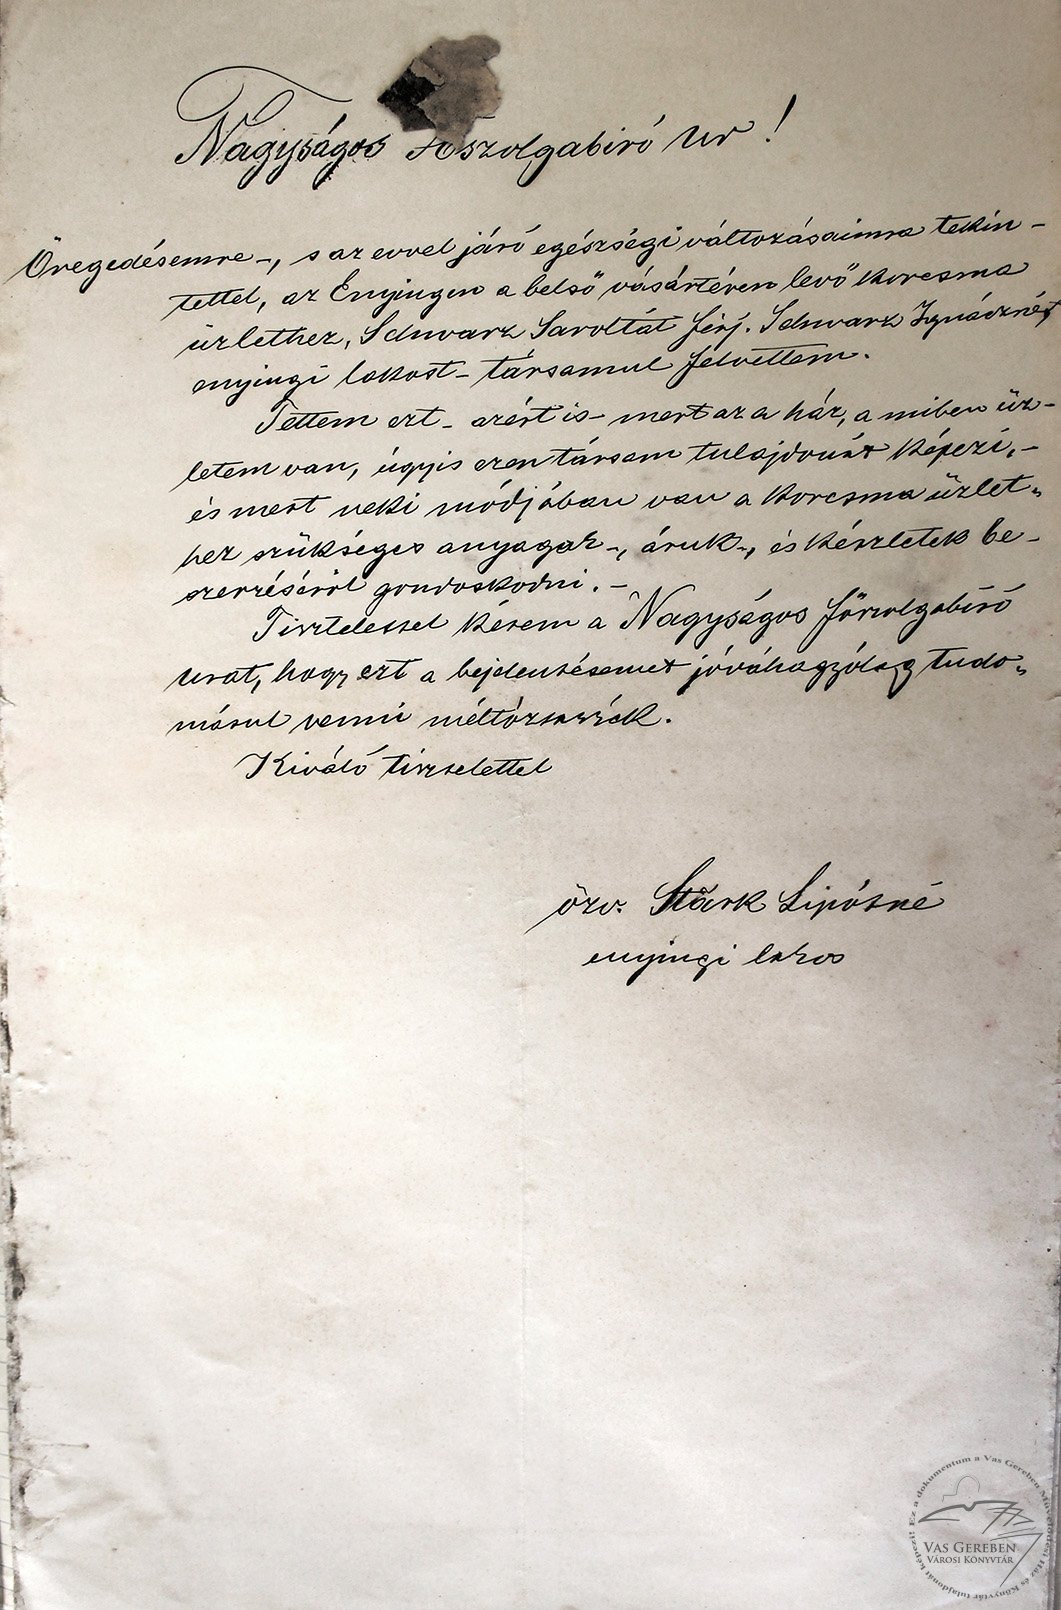 Nagyságos Főszolgabiró Ur!
Öregedésemre-, s az evvel járó egészségi változásaimra tekin-
tettel, az Enyingen a belső vásártéren levő korcsma
üzlethez, Schwarz Saroltát férj. Schwarz Ignácznét
enyingi lakost - társamul felvettem.
Tettem ezt - azért is - mert az a ház, a miben üz-
letem van, úgyis ezen társam tulajdonát képezi, -
és mert neki módjában van a korcsma üzlet-
hez szükséges anyagok-, áruk-, és készletek be-
szerzéséről gondoskodni. -
Tisztelettel kérem a Nagyságos főszolgabíró
urat, hogy ezt a bejelentésemet jóváhagyólag tudo-
másul venni méltóztassék.
Kiváló tisztelettel
özv. Stark Lipótné
enyingi lakos
Ez a dokumentum a Vas Gereben Művelődési Ház és Könyvtár tulajdonát képezi!
VAS GEREBEN
VÁROSI KÖNYVTÁR